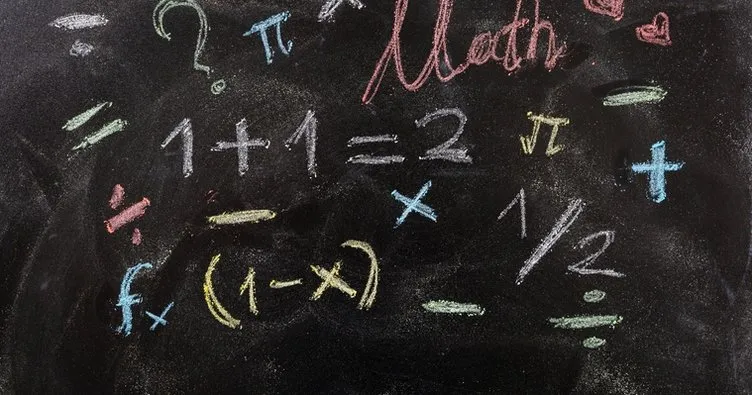 ÷ ? π Math
= 1+1=2 π −
÷ − × 1/2 +
fx (1-x) − ÷